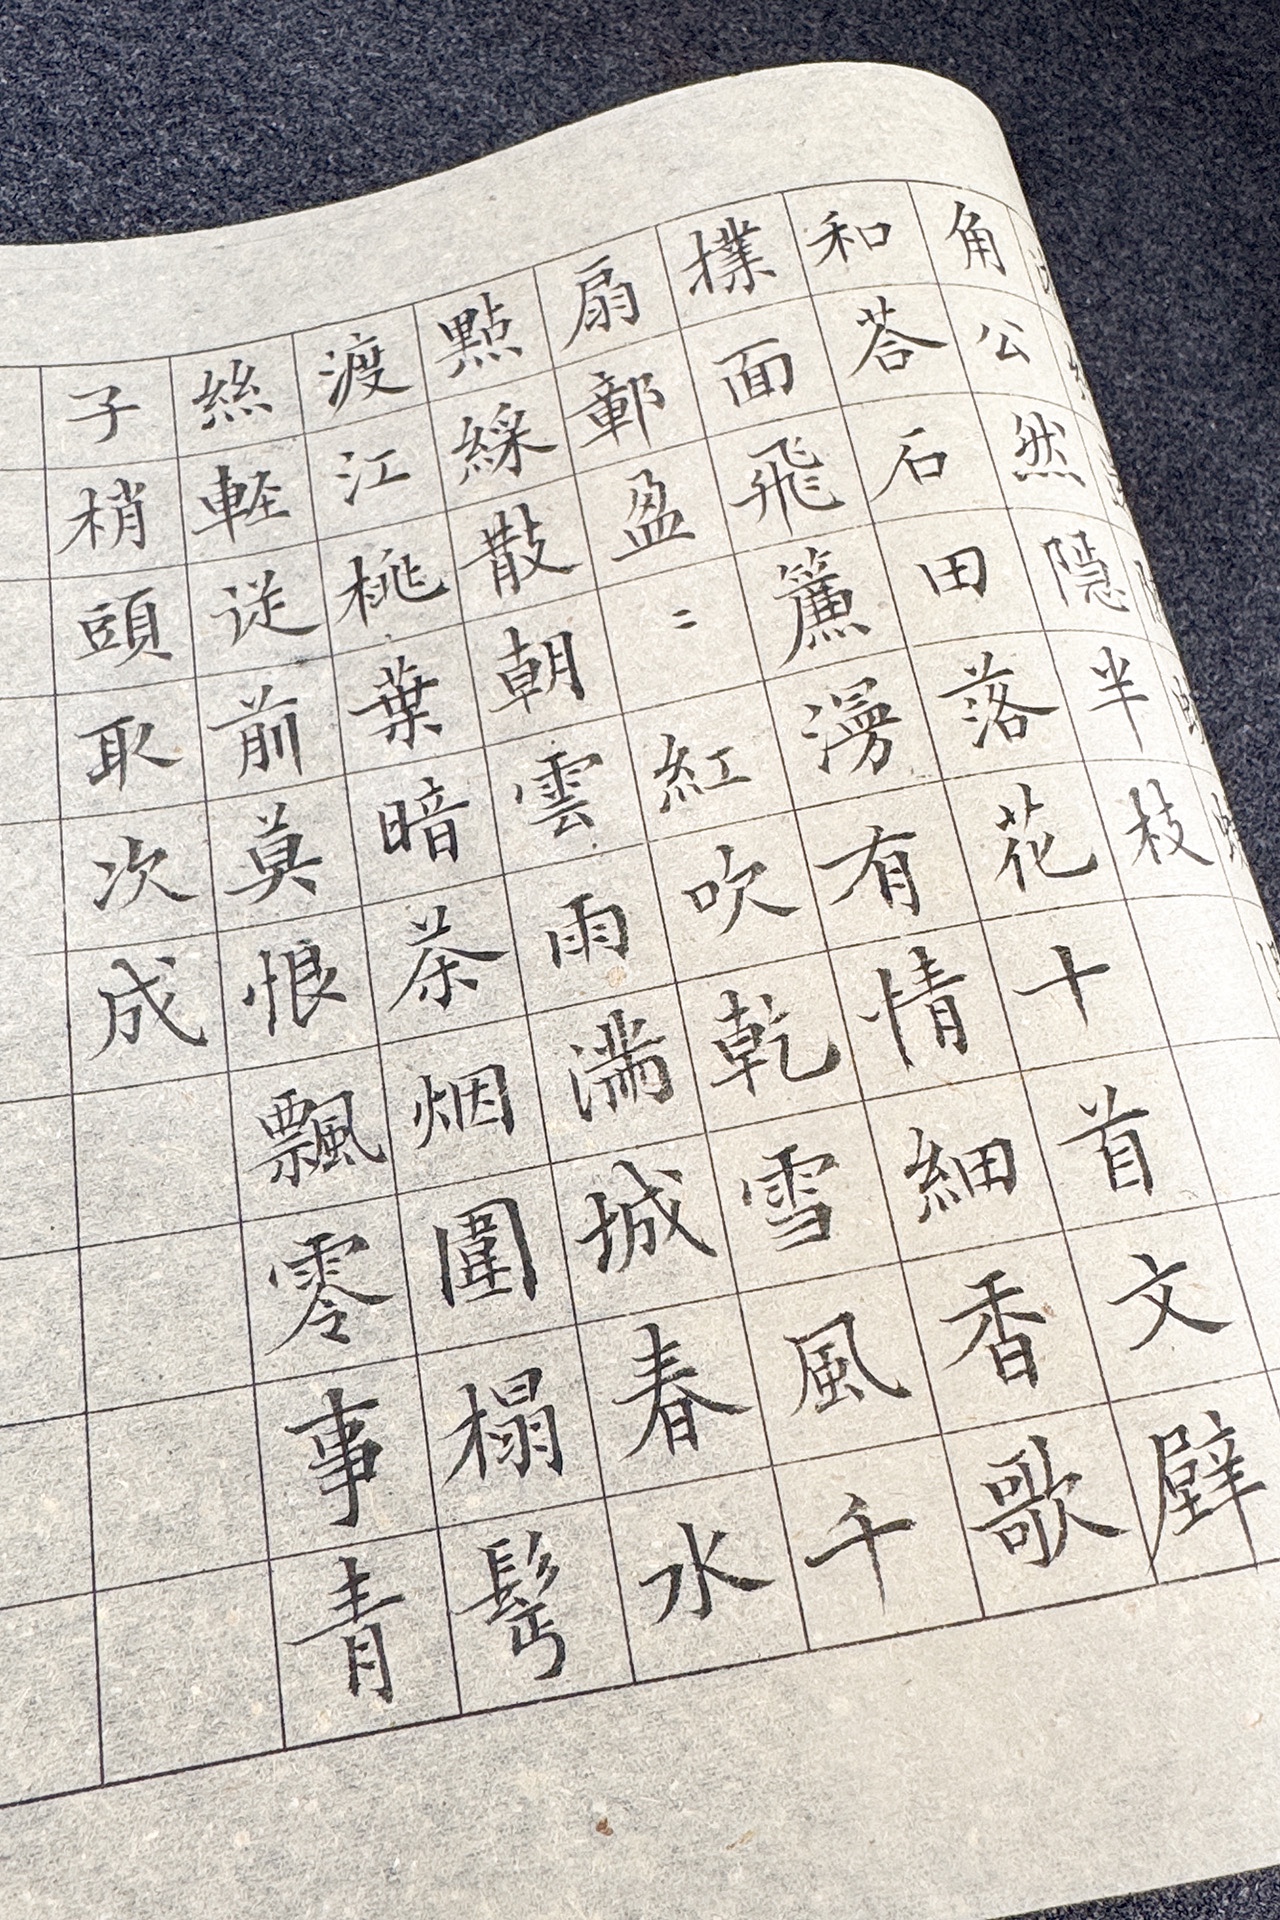 角公然隱半枝
和荅石田落花十首文壁
撲面飛簾漫有情細香歌
扇鄣盈〻紅吹乾雪風千
點綵散朝雲雨滿城春水
渡江桃葉暗茶烟圍榻鬂
絲軽従前莫恨飄零事青
子梢頭取次成